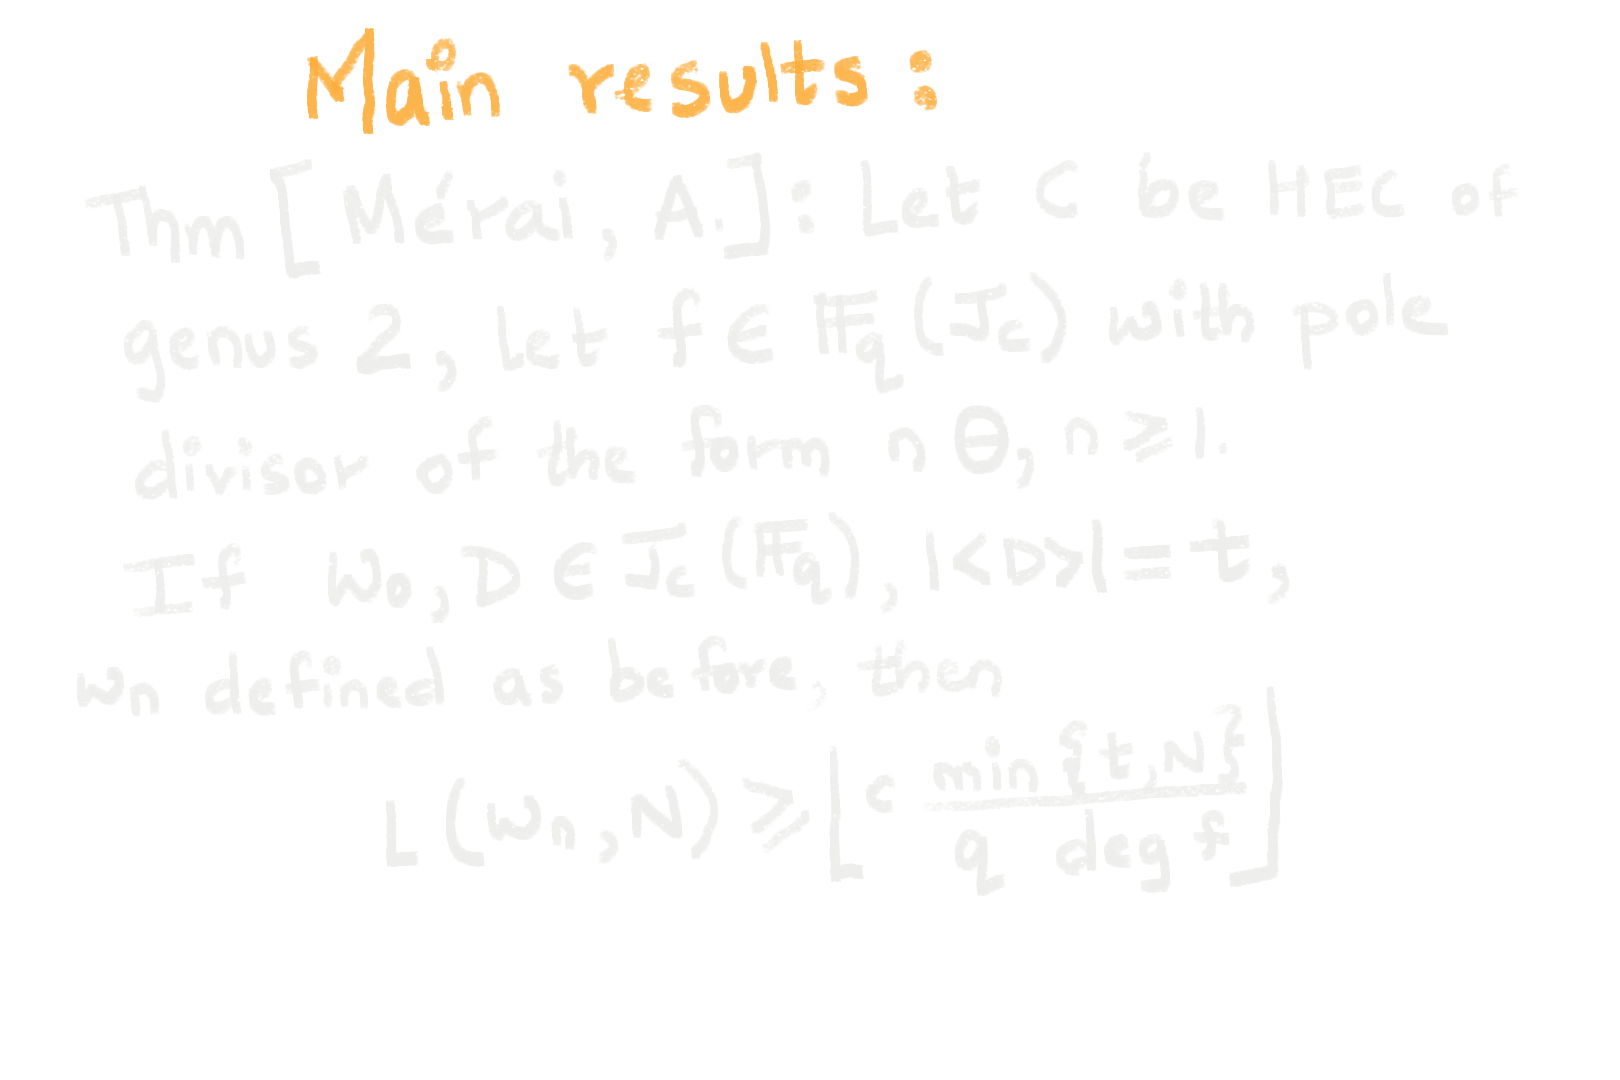 Main results:
Thm [Mérai, A.]: Let C be HEC of
genus 2, let f ∈ 𝔽q (Jc) with pole
divisor of the form n Θ, n ⩾ 1.
If w₀, D ∈ Jc (𝔽q), |<D>| = t,
wn defined as before, then
L (wn, N) ⩾ ⌊ c min {t, N} / q deg f ⌋